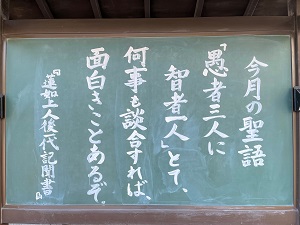 今月の聖語
「愚者三人に
智者一人」とて、
何事も談合すれば、
面白きことあるぞ。
『蓮如上人後一代記聞書』